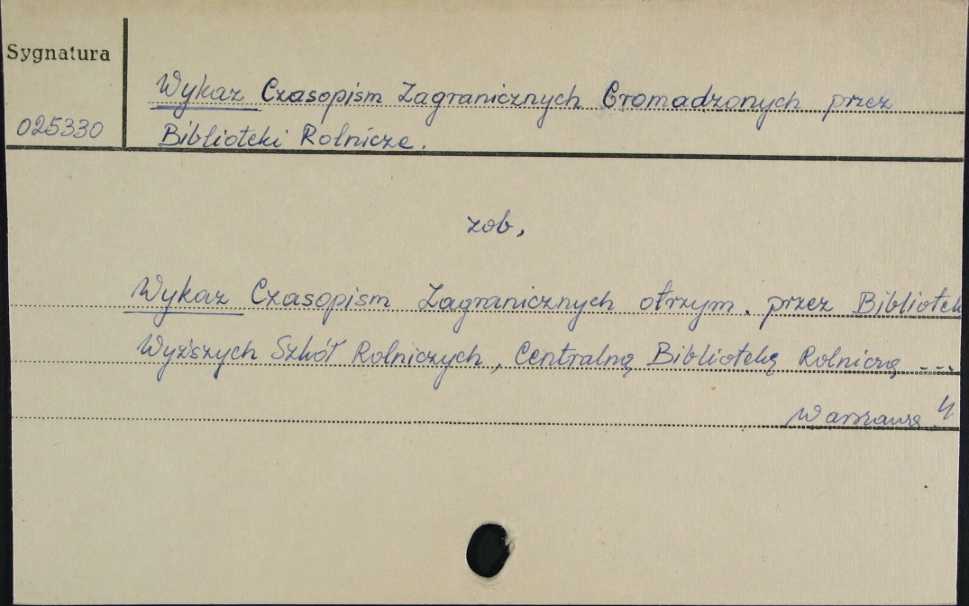 Sygnatura
Wykaz Czasopism Zagranicznych Gromadzonych przez
025330
Biblioteki Rolnicze.
zob.
Wykaz Czasopism Zagranicznych otrzym. przez Bibliotek
Wyższych Szkół Rolniczych, Centralną Biblioteką Rolniczą ...
Warszawa